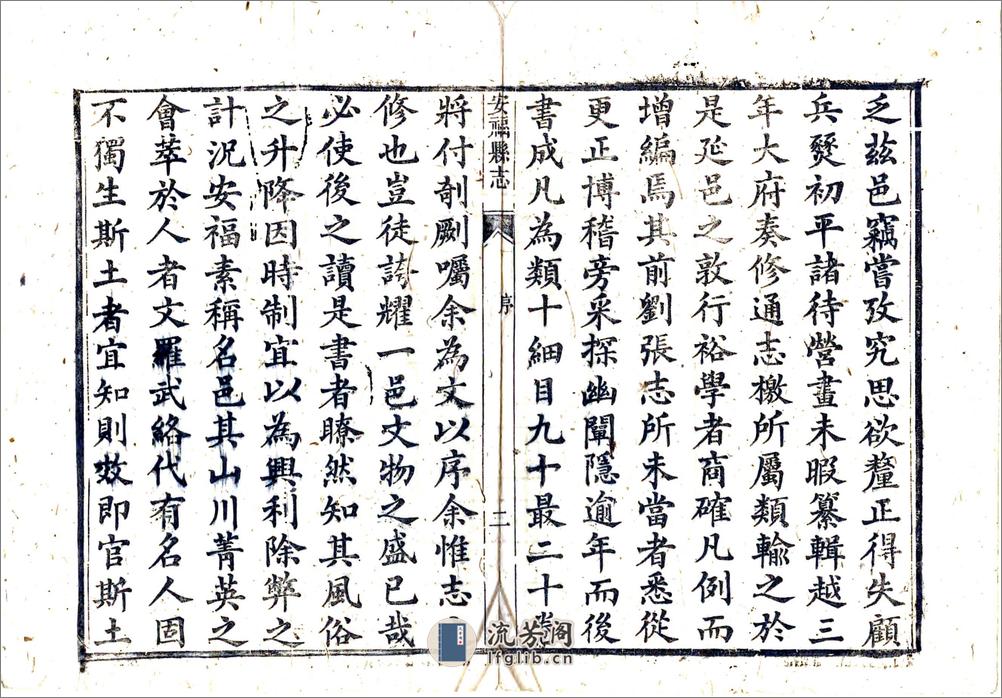 乏茲邑竊嘗攷究思欲釐正得失顧
兵燹初平諸待營畫未暇纂輯越三
年大府奏修通志檄所屬類輸之於
是延邑之敦行裕學者商確凡例而
增編焉其前劉張志所未當者悉從
更正博稽旁采探幽闡隱逾年而後
書成凡為類十細目九十最二十
安福縣志
序
二
將付剞劂囑余為文以序余惟志
修也豈徒誇耀一邑文物之盛已哉
必使後之讀是書者瞭然知其風俗
之升降因時制宜以為興利除弊之
計況安福素稱名邑其山川菁英之
會萃於人者文羅武絡代有名人固
不獨生斯土者宜知則效即官斯土
流芳阁
lfglib.cn